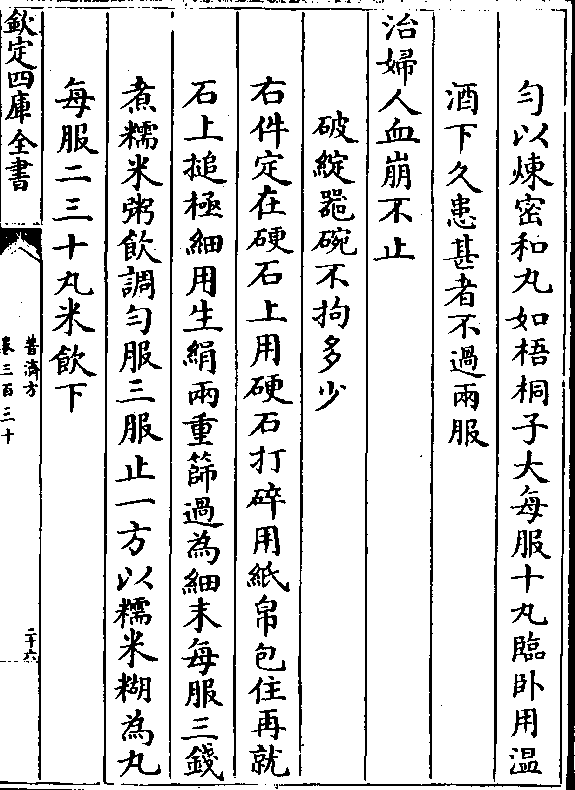 勻以煉密和丸如梧桐子大每服十丸臨卧用温
酒下久患甚者不過兩服
治婦人血崩不止
破綻甆碗不拘多少
右件定在硬石上用硬石打碎用紙帛包住再就
石上搥極細用生絹兩重篩過為細末每服三錢
煮糯米粥飲調勻服三服止一方以糯米糊為丸
每服二三十丸米飲下
欽定四庫全書
普濟方
卷三百三十
二十六